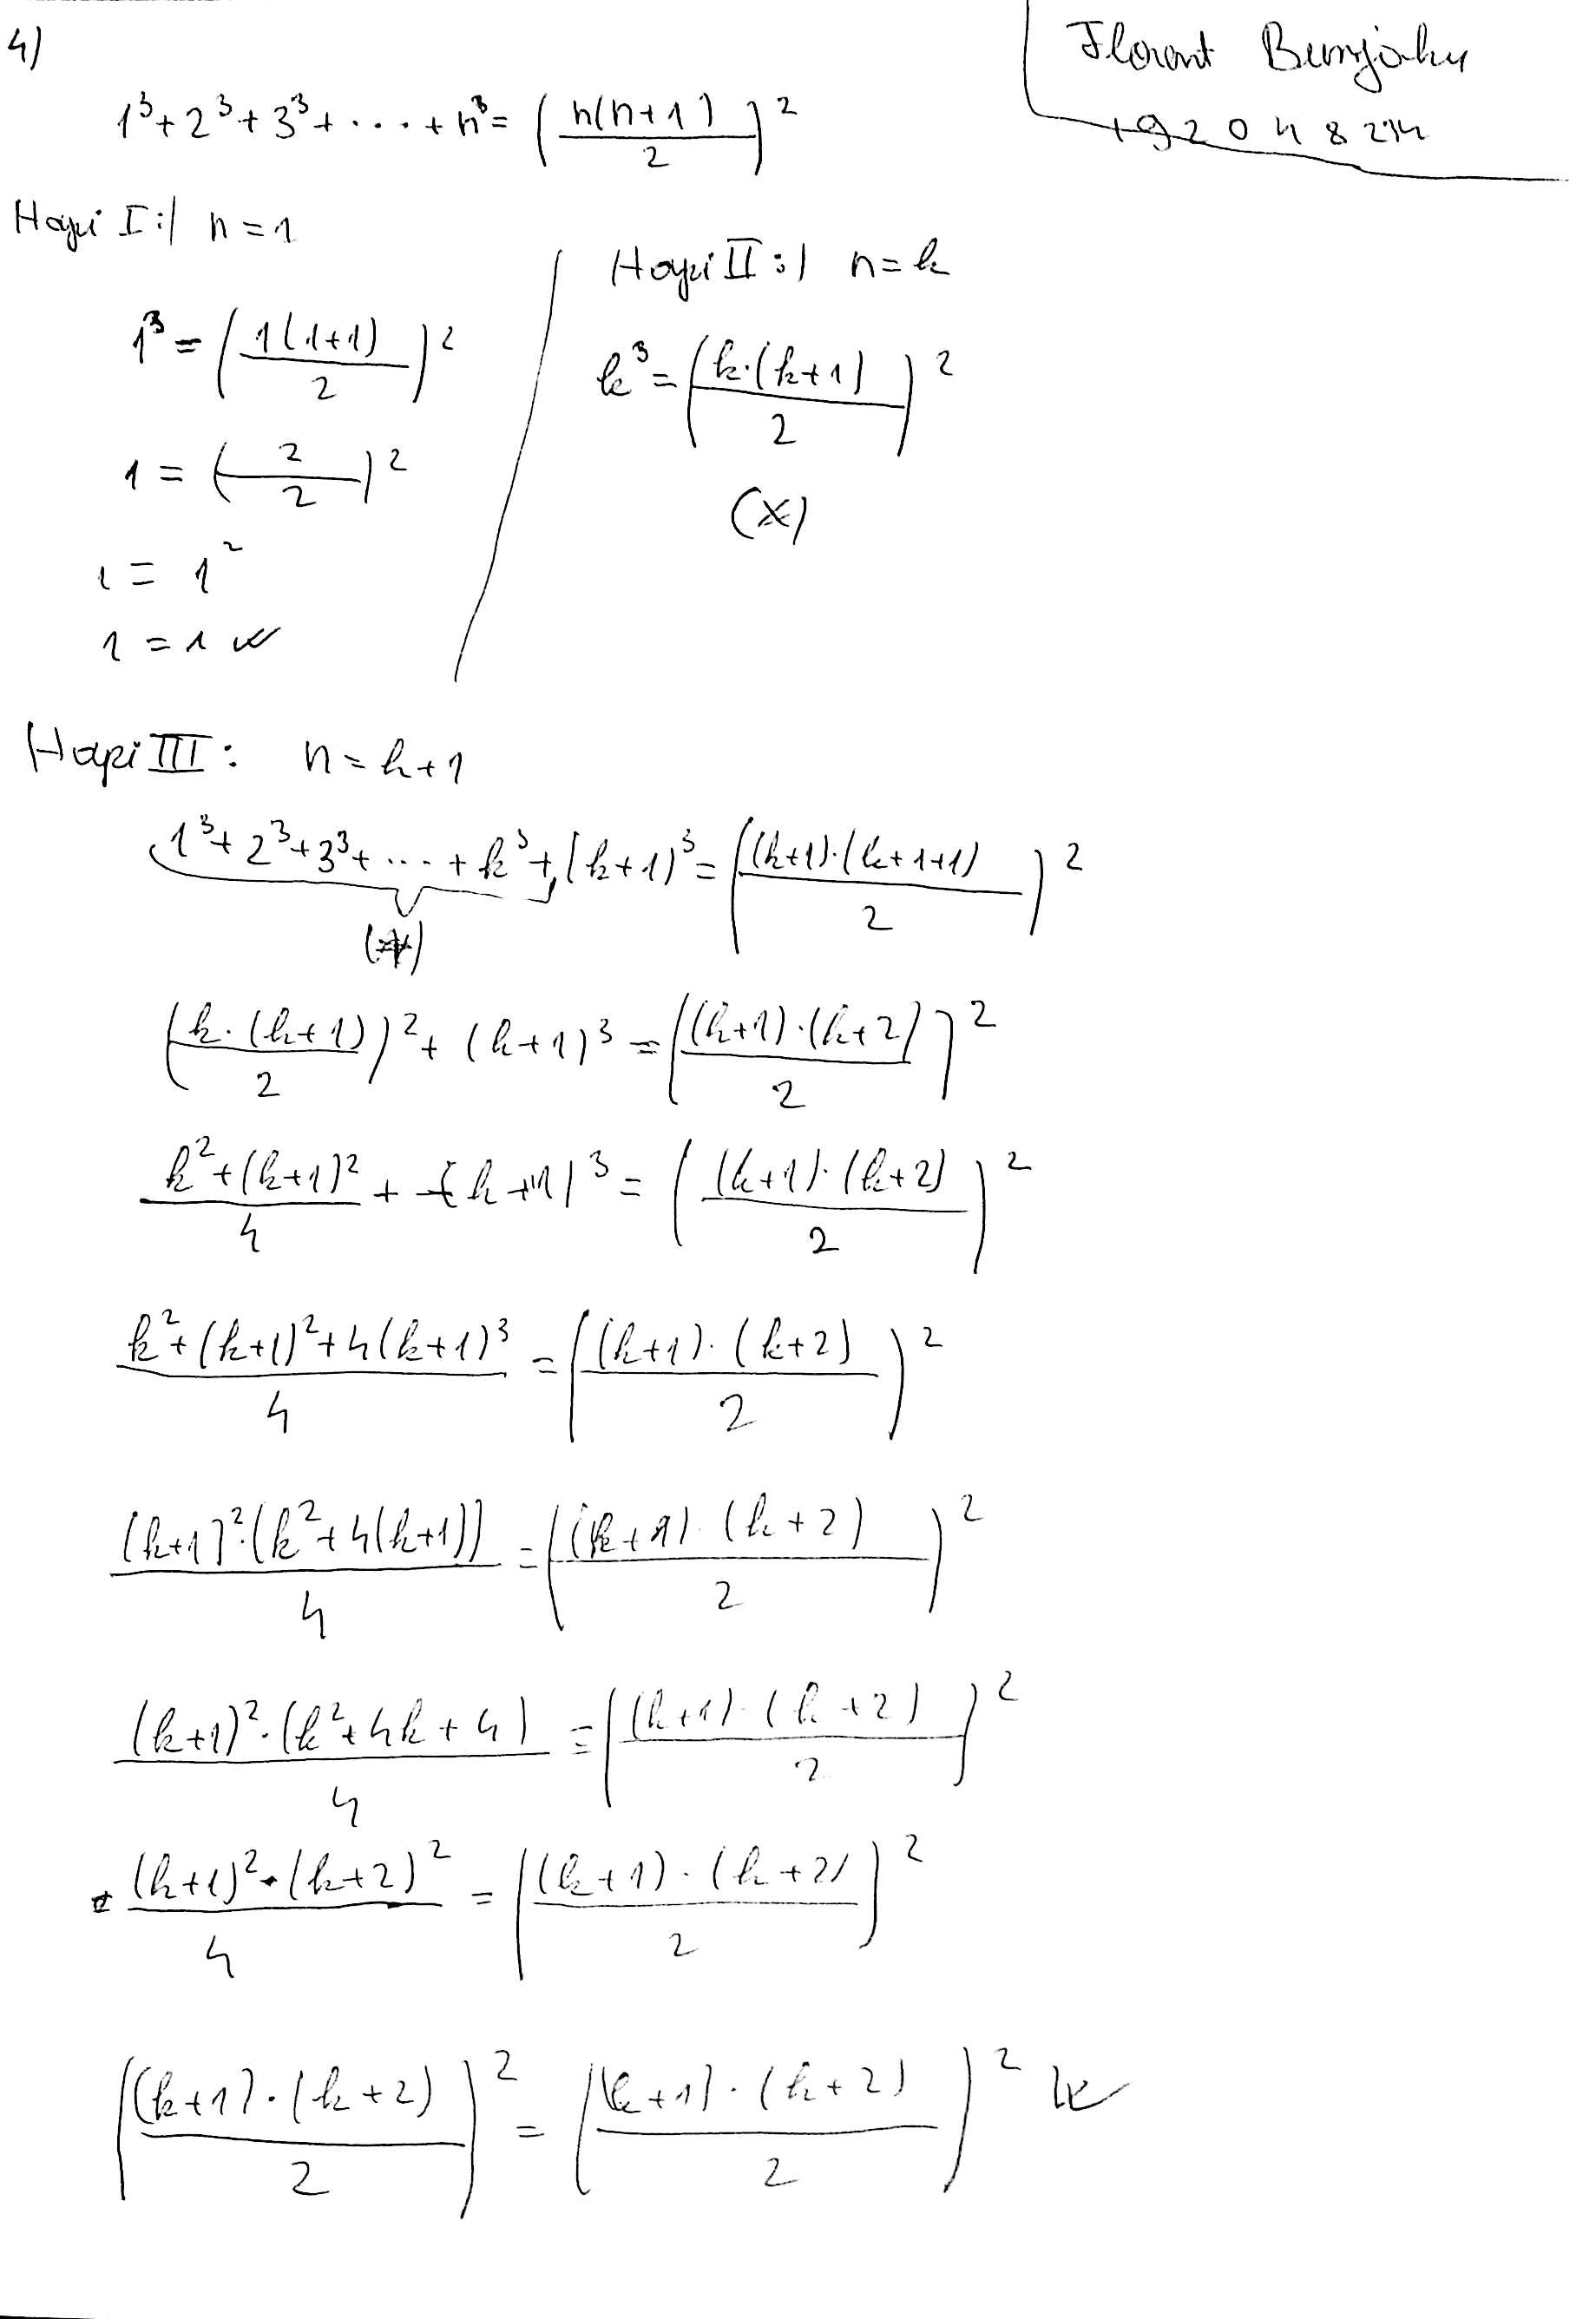 4)
Florent Bunjaku
192048214
1³+2³+3³+...+n³=(n(n+1)/2)²
Hapi I:) n=1
1³=(1(1+1)/2)²
1=(2/2)²
1=1²
1=1
Hapi II:) n=k
k³=(k·(k+1)/2)²
(*)
Hapi III: n=k+1
1³+2³+3³+...+k³+(k+1)³=((k+1)·(k+1+1)/2)²
(*)
(k·(k+1)/2)²+(k+1)³=((k+1)·(k+2)/2)²
k²+(k+1)²/4+(k+1)³=((k+1)·(k+2)/2)²
k²+(k+1)²+4(k+1)³/4=((k+1)·(k+2)/2)²
(k+1)²·(k²+4(k+1))/4=((k+1)·(k+2)/2)²
(k+1)²·(k²+4k+4)/4=((k+1)·(k+2)/2)²
(k+1)²·(k+2)²/4=((k+1)·(k+2)/2)²
((k+1)·(k+2)/2)²=((k+1)·(k+2)/2)²